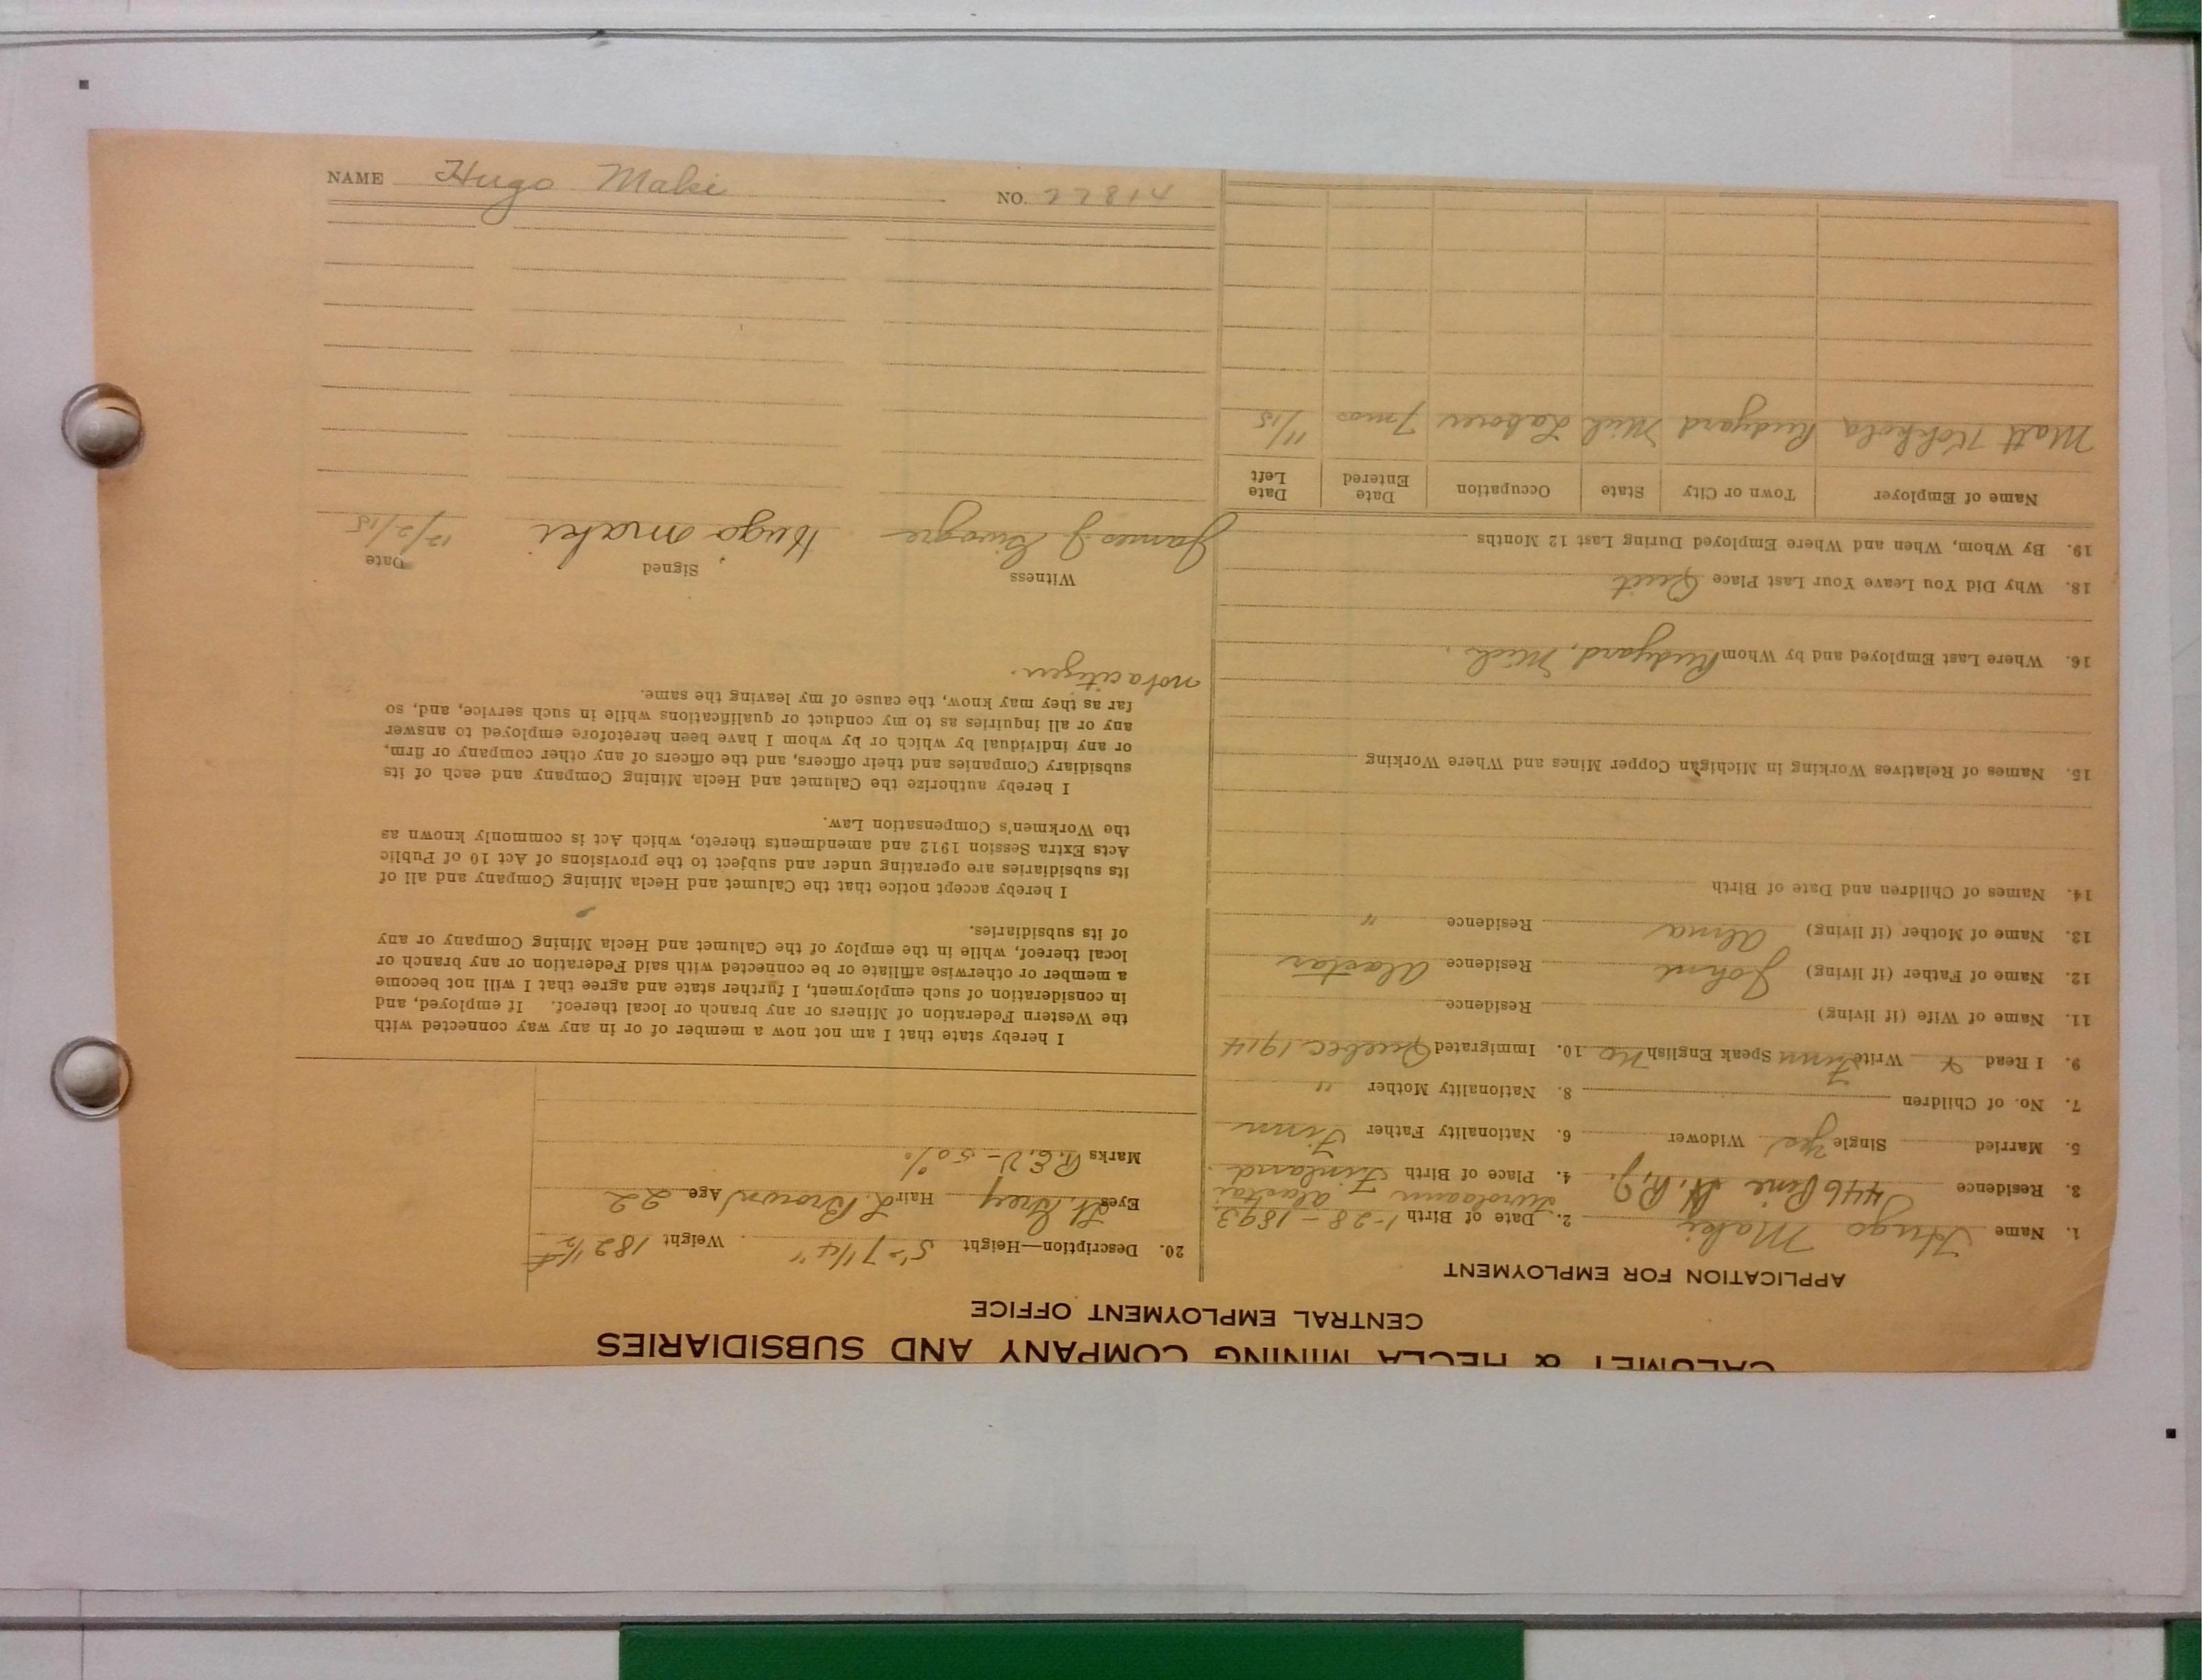 CALUMET & HECLA MINING COMPANY AND SUBSIDIARIES
CENTRAL EMPLOYMENT OFFICE
APPLICATION FOR EMPLOYMENT
1. Name Hugo Maki 2. Date of Birth 1-28-1893
3. Residence 4446 Pine St. R.J. 4. Place of Birth Finland
5. Married Single yes Widower 6. Nationality Father Finn
7. No. of Children 8. Nationality Mother "
9. I Read & Write Finn Speak English no 10. Immigrated Quebec 1914
11. Name of Wife (if living) Residence
12. Name of Father (if living) John Residence Alastar
13. Name of Mother (if living) Alma Residence "
14. Names of Children and Date of Birth
15. Names of Relatives Working in Michigan Copper Mines and Where Working
16. Where Last Employed and by Whom Rudyard, Mich.
18. Why Did You Leave Your Last Place Quit
19. By Whom, When and Where Employed During Last 12 Months
Name of Employer Town or City State Occupation Date Entered Date Left
Matt Kokkola Rudyard Mich Laborer 7 mos 11/15
20. Description—Height 5'-7 1/4" Weight 182 1/2
Eyes Grey Hair L. Brown Age 22
Marks R.E.V-50%
I hereby state that I am not now a member of or in any way connected with
the Western Federation of Miners or any branch or local thereof. If employed, and
in consideration of such employment, I further state and agree that I will not become
a member or otherwise affiliate or be connected with said Federation or any branch or
local thereof, while in the employ of the Calumet and Hecla Mining Company or any
of its subsidiaries.
I hereby accept notice that the Calumet and Hecla Mining Company and all of
its subsidiaries are operating under and subject to the provisions of Act 10 of Public
Acts Extra Session 1912 and amendments thereto, which Act is commonly known as
the Workmen's Compensation Law.
I hereby authorize the Calumet and Hecla Mining Company and each of its
subsidiary Companies and their officers, and the officers of any other company or firm,
or any individual by which or by whom I have been heretofore employed to answer
any or all inquiries as to my conduct or qualifications while in such service, and, so
far as they may know, the cause of my leaving the same.
not a citizen.
Witness Signed Date
James J. Hugo Maki 12/2/15
NAME Hugo Maki NO. 22814